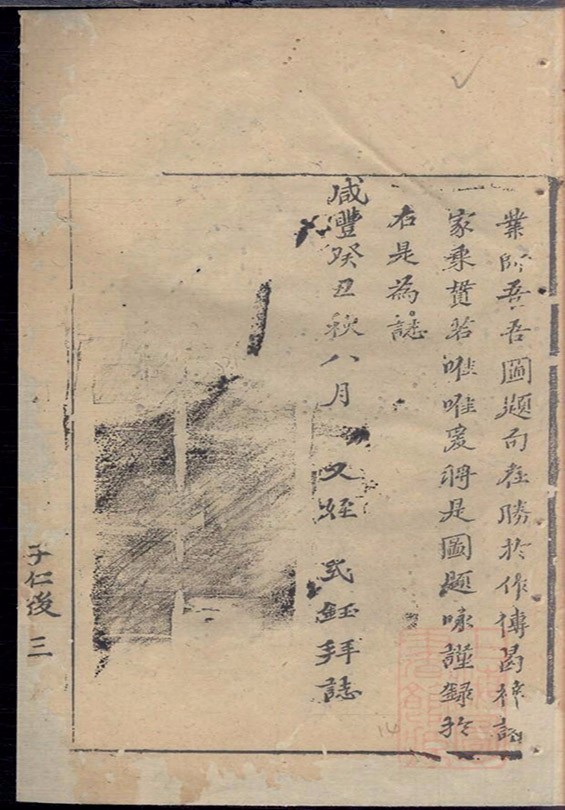 業師吾吾圖題句在勝於作傳曷梓諸
家乘贊若唯唯爰將是圖題咏謹錄於
右是為誌
咸豐癸丑秋八月 又姪 式鈺拜誌
子仁後 三
14